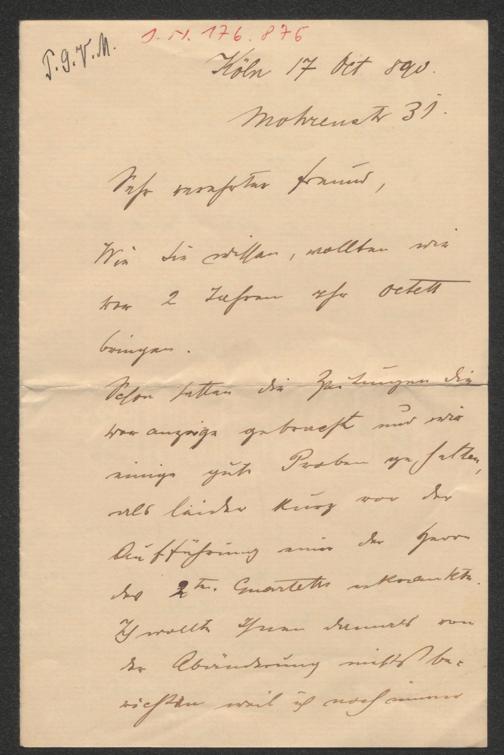 T.G.V.M.
J.N. 176.876
Köln 17 Oct 890.
Mohrenstr 31.
Sehr verehrter Freund,
Wie Sie wissen, wollten wir
vor 2 Jahren Ihr Octett
bringen.
Schon hatten die Zeitungen die
Voranzeige gebracht und wir
einige gute Proben gehalten,
als leider kurz vor der
Aufführung einer der Herrn
des 2ten. Quartetts erkrankte.
Ich wollte Ihnen damals von
der Abänderung nichts be-
richten weil ich noch immer